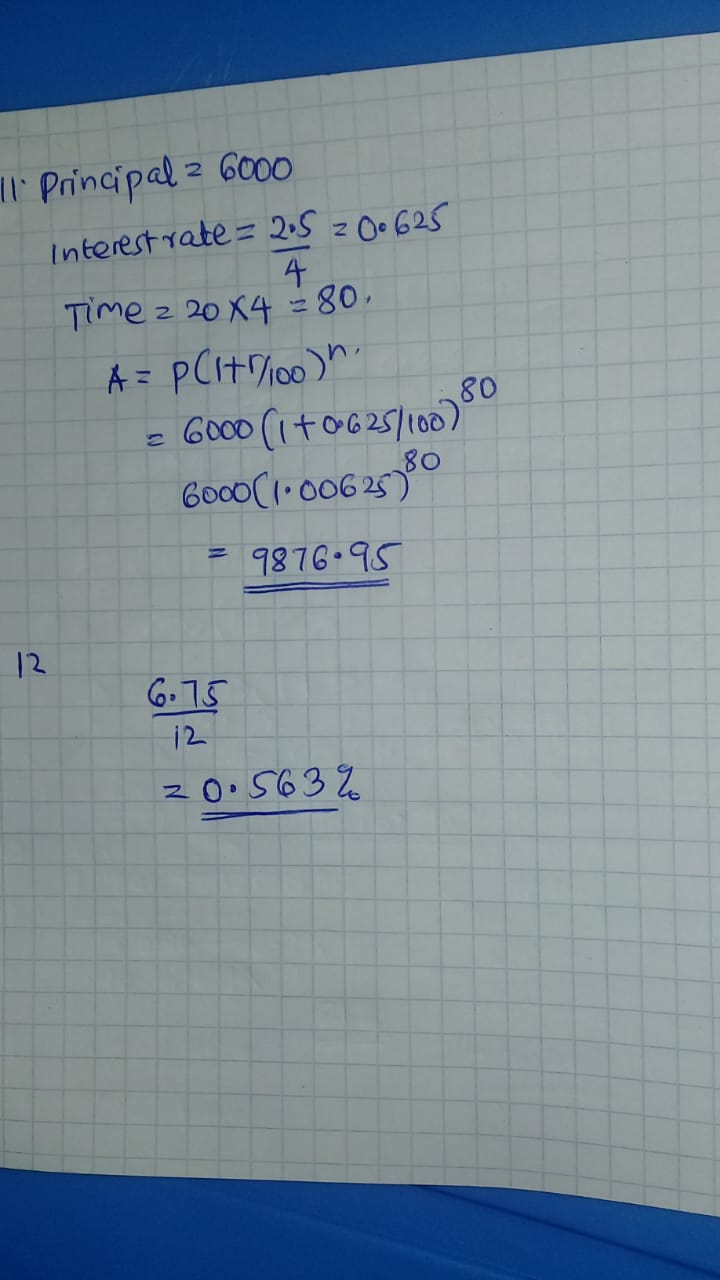 11. Principal = 6000
Interest rate = 2.5/4 = 0.625
Time = 20 x 4 = 80.
A = P(1+r/100)^n.
= 6000 (1+0.625/100)^80
6000(1.00625)^80
= 9876.95
12
6.75/12
= 0.563%